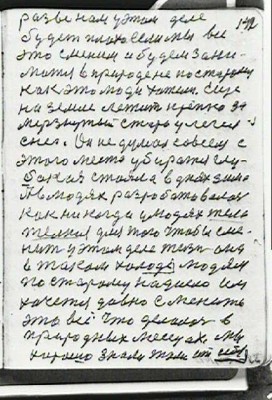 разве нам у этом деле
будет плохо если мы все
это сменим и будем зани-
маться в природе не по старому
как это люди хотим еще
на земле лежит крепко за
мерзнутый старо улегся
снег. Он не думал совсем с
этого места убираться глу-
бокая стояла в днях зима
На людях разработовалась
как никогда у людях
для того чтобы сме-
нить у этом деле
в таком холоде людям
по старому надоело им
хочется давно сменить
это всё что делалось в
природных местах, они
хорошо знали этот